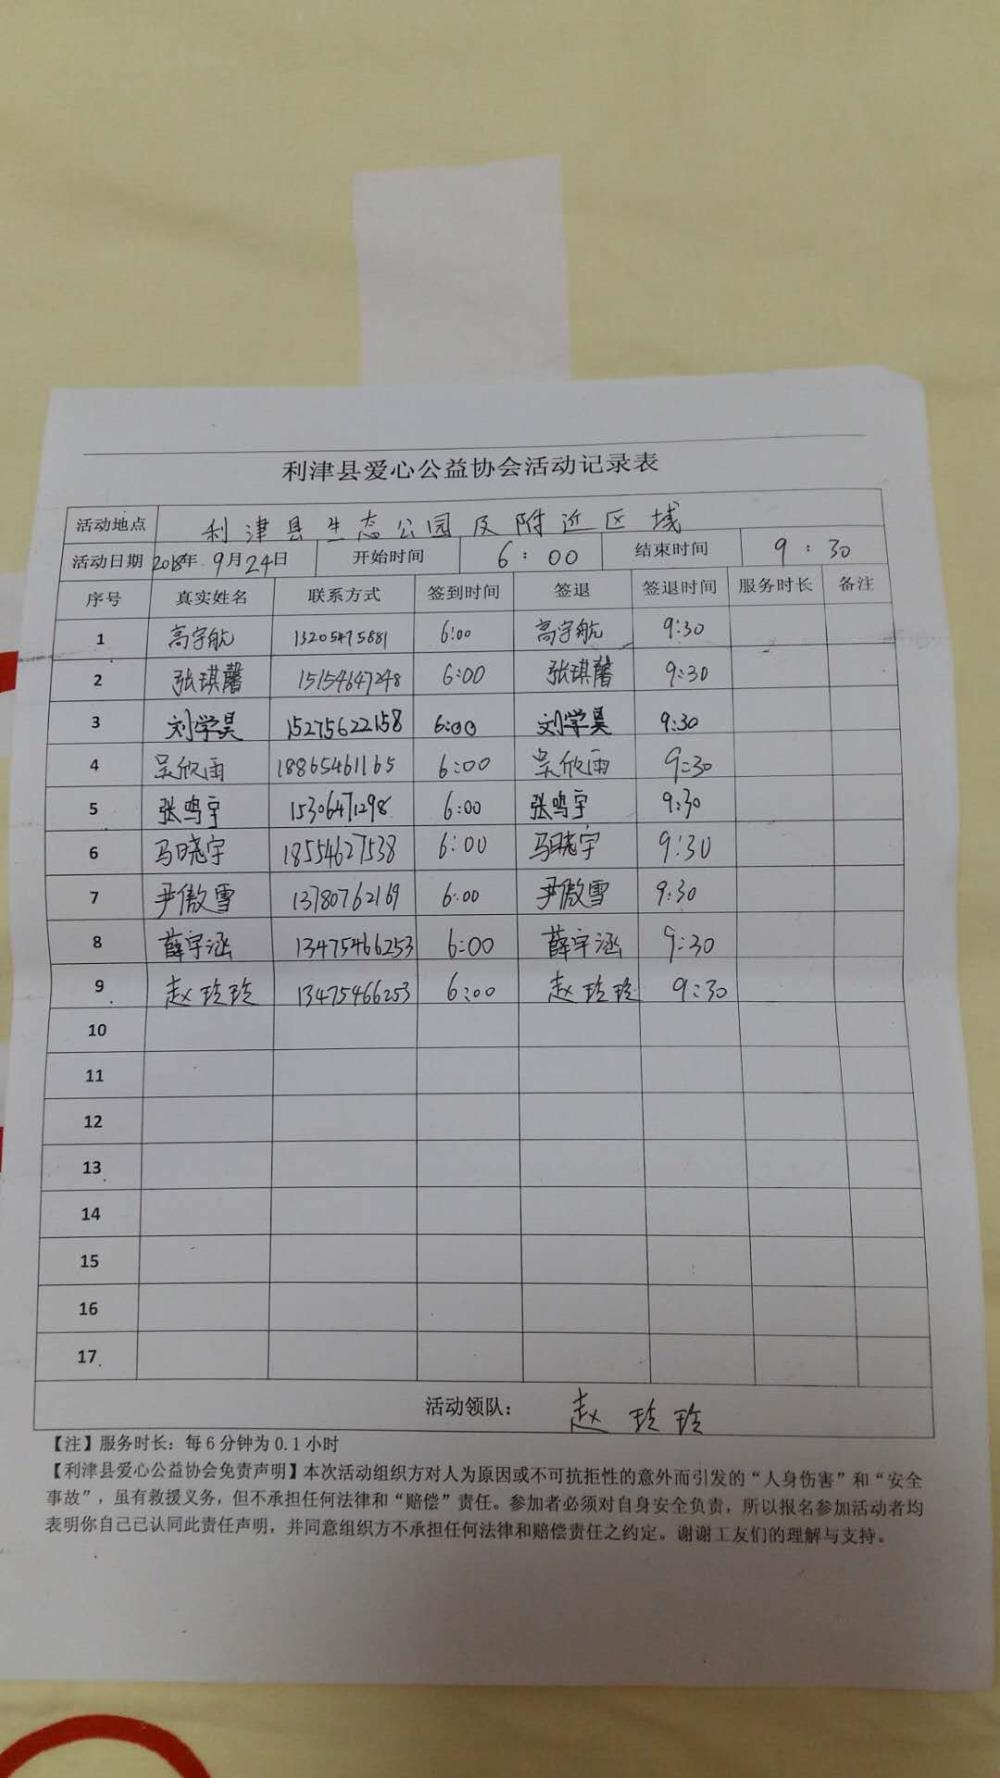 利津县爱心公益协会活动记录表
活动地点 利津县生态公园及附近区域
活动日期 2018年 9月24日 开始时间 6:00 结束时间 9:30
序号 真实姓名 联系方式 签到时间 签退 签退时间 服务时长 备注
1 高宇航 13205475881 6:00 高宇航 9:30
2 张琪馨 15154647248 6:00 张琪馨 9:30
3 刘学昊 15275622158 6:00 刘学昊 9:30
4 吴欣雨 18865461165 6:00 吴欣雨 9:30
5 张鸣宇 15306471298 6:00 张鸣宇 9:30
6 马晓宇 18554627538 6:00 马晓宇 9:30
7 尹傲雪 13780762169 6:00 尹傲雪 9:30
8 薛宇涵 13475466253 6:00 薛宇涵 9:30
9 赵玲玲 13475466253 6:00 赵玲玲 9:30
10
11
12
13
14
15
16
17
活动领队： 赵玲玲
【注】服务时长：每6分钟为0.1小时
【利津县爱心公益协会免责声明】本次活动组织方对人为原因或不可抗拒性的意外而引发的“人身伤害”和“安全
事故”，虽有救援义务，但不承担任何法律和“赔偿”责任。参加者必须对自身安全负责，所以报名参加活动者均
表明你自己已认同此责任声明，并同意组织方不承担任何法律和赔偿责任之约定。谢谢工友们的理解与支持。